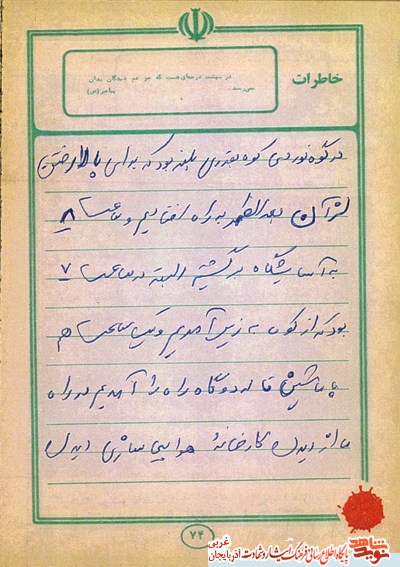 خاطرات
در بهشت درجه‌ای هست که جز غم دیدگان بدان
نمی‌رسند. پیامبر(ص)
در کوه نوردی کوه بقدری بلند بود که برای بالا رفتن
از آن بعد الظهر به راه افتادیم و ساعت ۸
به آسایشگاه برگشتیم البته در ساعت ۷
بود که از کوه به زمین آمدیم و یک ساعت هم
با ماشین تا اردوگاه راه را آمدیم در راه
ما از دیدن کارخانهٔ هواپیما سازی دیدن
۷۴
نوید شاهد
پایگاه اطلاع رسانی فرهنگ ایثار و شهادت آذربایجان غربی